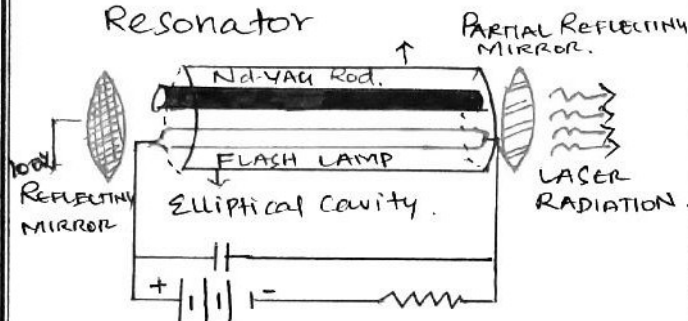 Resonator
PARTIAL REFLECTING
MIRROR.
Nd-YAG Rod.
100%
REFLECTING
MIRROR
FLASH LAMP
Elliptical Cavity.
LASER
RADIATION.
+ -